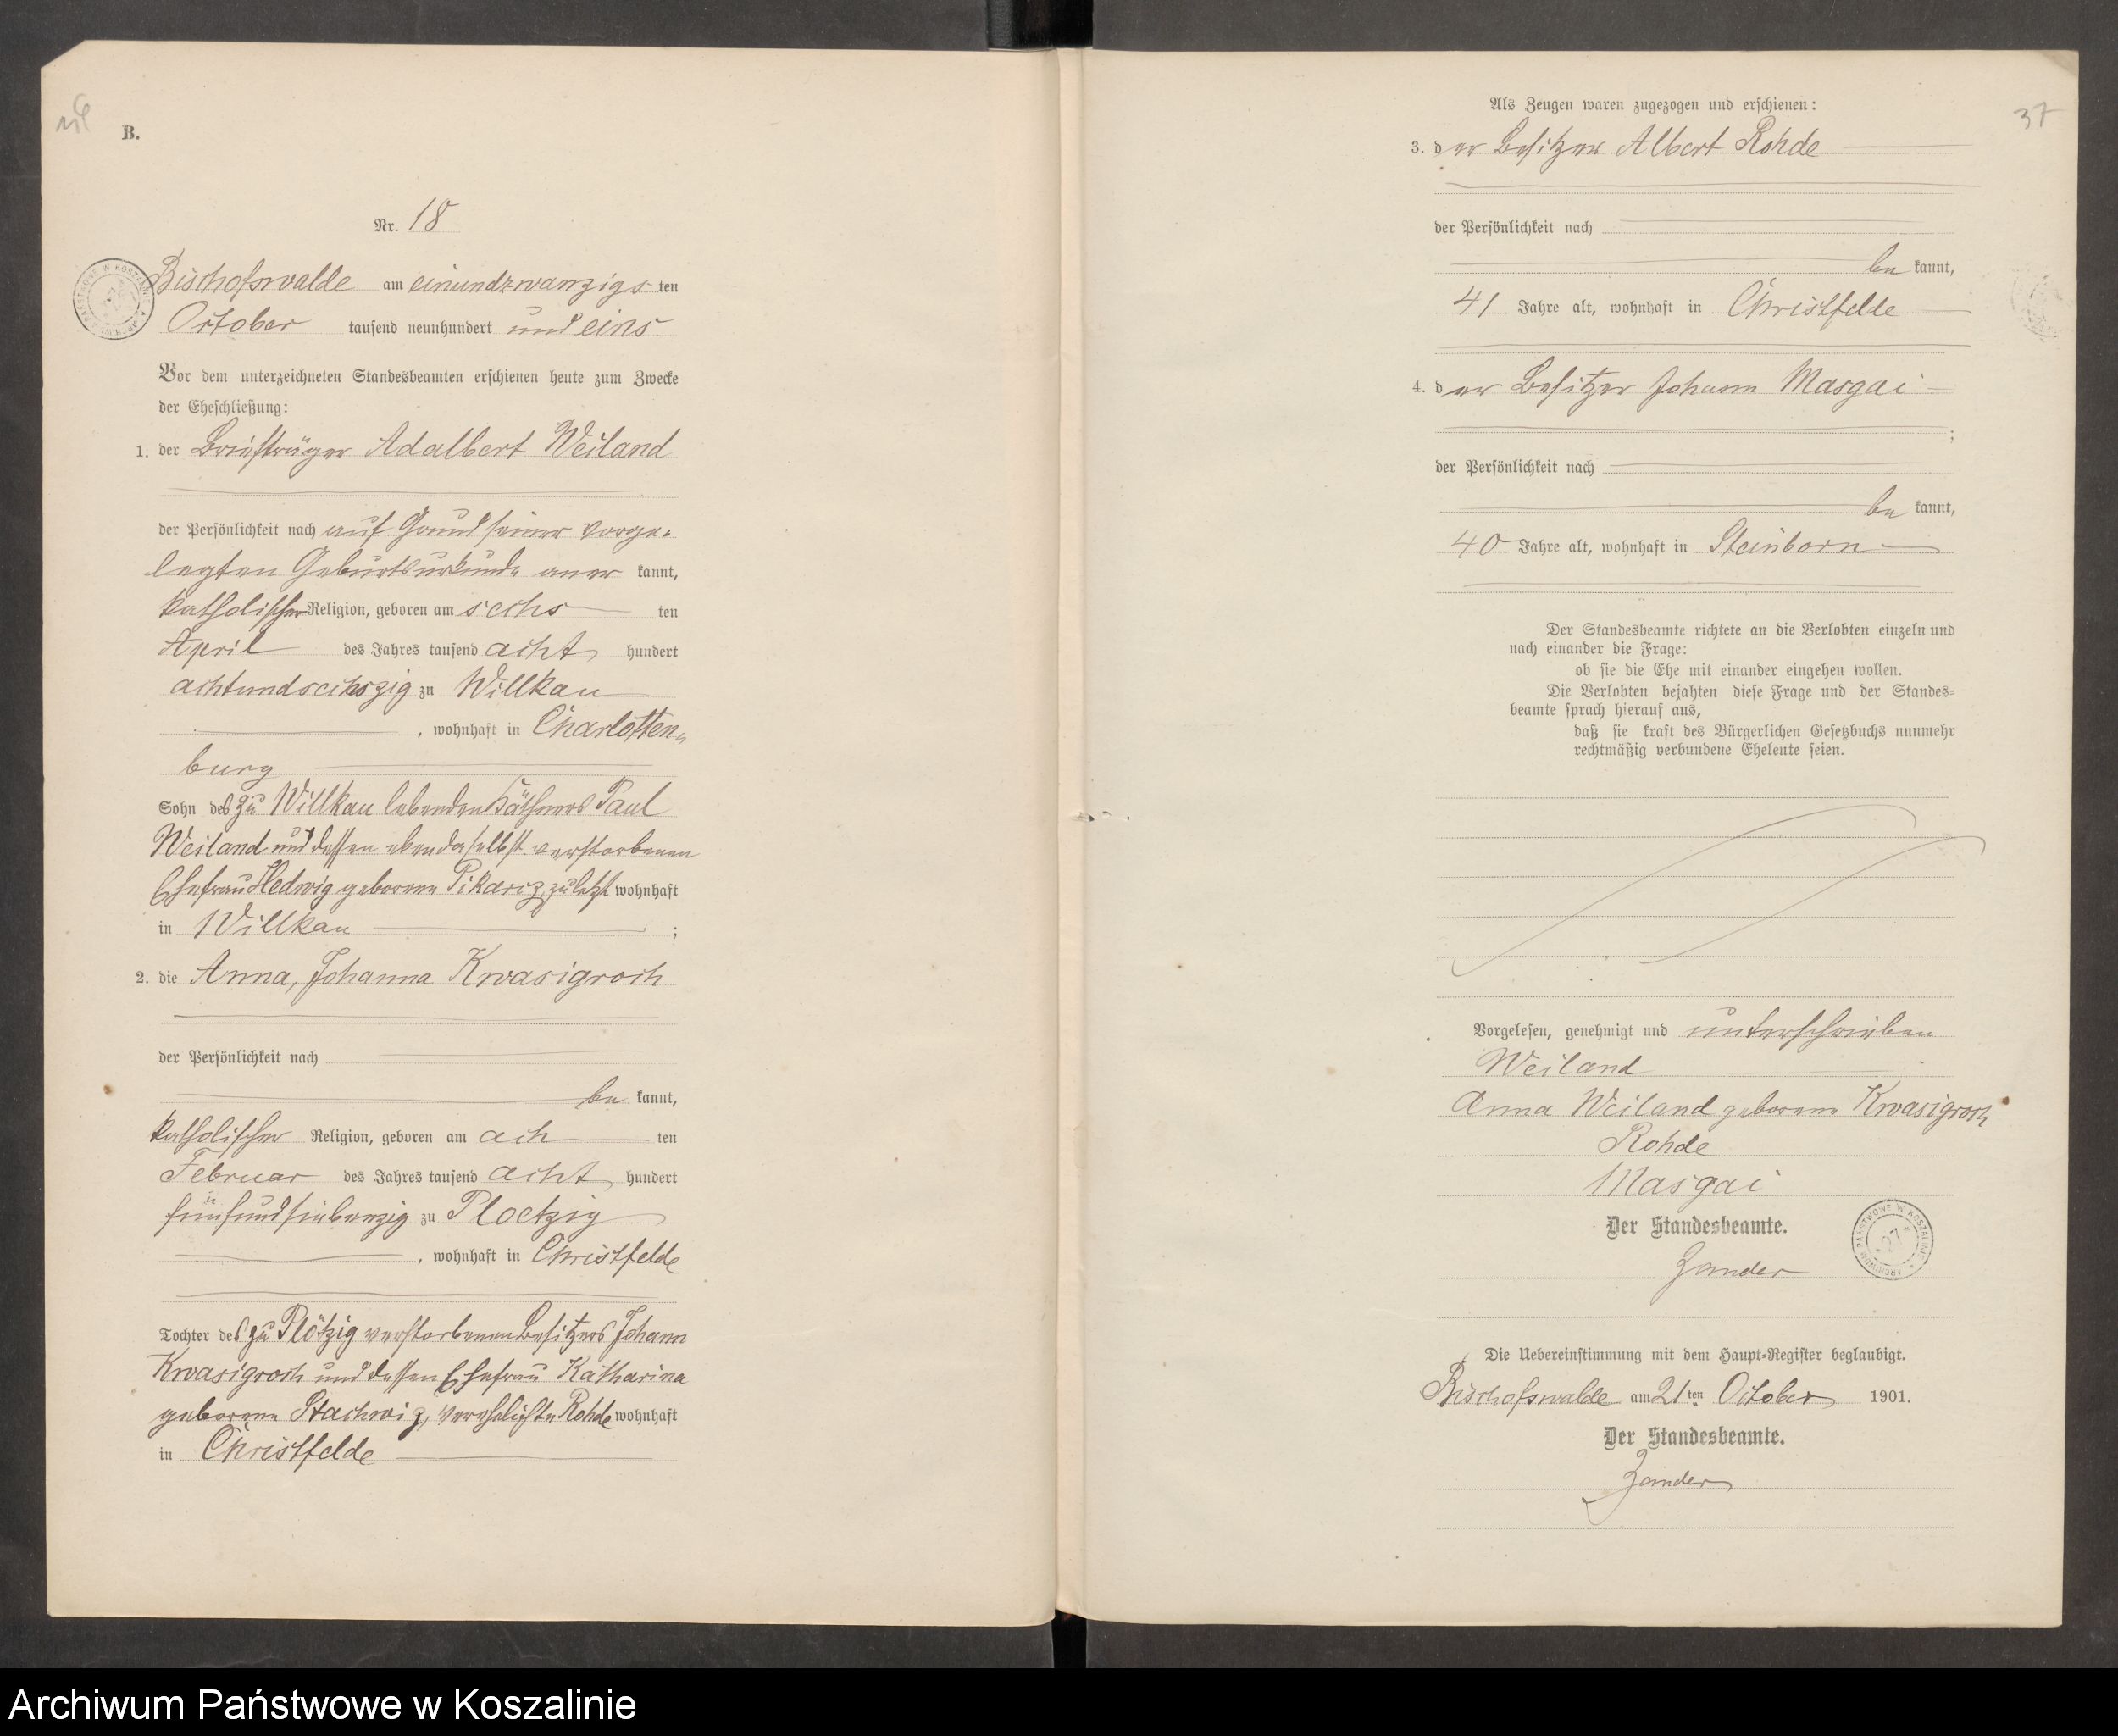 B.
Nr. 18
Bischofswalde am einundzwanzigs ten
October tausend neunhundert und eins
Vor dem unterzeichneten Standesbeamten erschienen heute zum Zwecke
der Eheschließung:
1. der Briefträger Adalbert Weiland
der Persönlichkeit nach auf Grund seiner vorge-
legten Geburtsurkunde aner kannt,
katholischer Religion, geboren am sechs ten
April des Jahres tausend acht hundert
achtundsechszig zu Willkau
, wohnhaft in Charlotten-
burg
Sohn des zu Willkau lebenden Käthners Paul
Weiland und dessen ebendaselbst verstorbenen
Ehefrau Hedwig geborene Pikarcz, zuletzt wohnhaft
in Willkau ;
2. die Anna, Johanna Kwasigroch
der Persönlichkeit nach
be kannt,
katholischer Religion, geboren am ach ten
Februar des Jahres tausend acht hundert
fünfundsiebenzig zu Ploetzig
, wohnhaft in Christfelde
Tochter des zu Plötzig verstorbenen Besitzers Johann
Kwasigroch und dessen Ehefrau Katharina
geborene Stachwig, verehelichte Rohde wohnhaft
in Christfelde
37
Als Zeugen waren zugezogen und erschienen:
3. der Besitzer Albert Rohde
der Persönlichkeit nach
be kannt,
41 Jahre alt, wohnhaft in Christfelde
4. der Besitzer Johann Masgai
;
der Persönlichkeit nach
be kannt,
40 Jahre alt, wohnhaft in Steinborn
Der Standesbeamte richtete an die Verlobten einzeln und
nach einander die Frage:
ob sie die Ehe mit einander eingehen wollen.
Die Verlobten bejahten diese Frage und der Standes-
beamte sprach hierauf aus,
daß sie kraft des Bürgerlichen Gesetzbuchs nunmehr
rechtmäßig verbundene Eheleute seien.
Vorgelesen, genehmigt und unterschrieben
Weiland
Anna Weiland geborene Kwasigroch
Rohde
Masgai
Der Standesbeamte.
Zander
ARCHIWUM PAŃSTWOWE W KOSZALINIE
27
Die Uebereinstimmung mit dem Haupt-Register beglaubigt.
Bischofswalde am 21ten October 1901.
Der Standesbeamte.
Zander
Archiwum Państwowe w Koszalinie